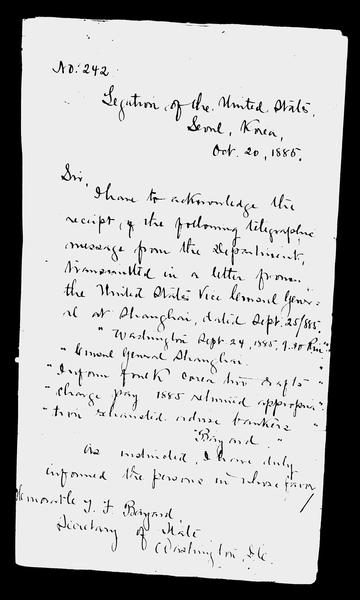 No. 242
Legation of the United States,
Seoul, Korea,
Oct. 20, 1885.
Sir,
I have to acknowledge the
receipt, of the following telegraphic
message from the Department,
transmitted in a letter from
the United States Vice Consul Gener-
al at Shanghai, dated Sept. 25/885.
"Washington Sept 24, 1885, 9.30 P.M."
"Consul General Shanghai. "
"Inform Foulk Corea two drafts "
"charge pay 1885 returned appropria-"
"tion exhausted advise bankers "
"Bayard "
As instructed, I have duly
informed the persons in whose favor
Honorable T. F. Bayard
Secretary of State
Washington, D.C.